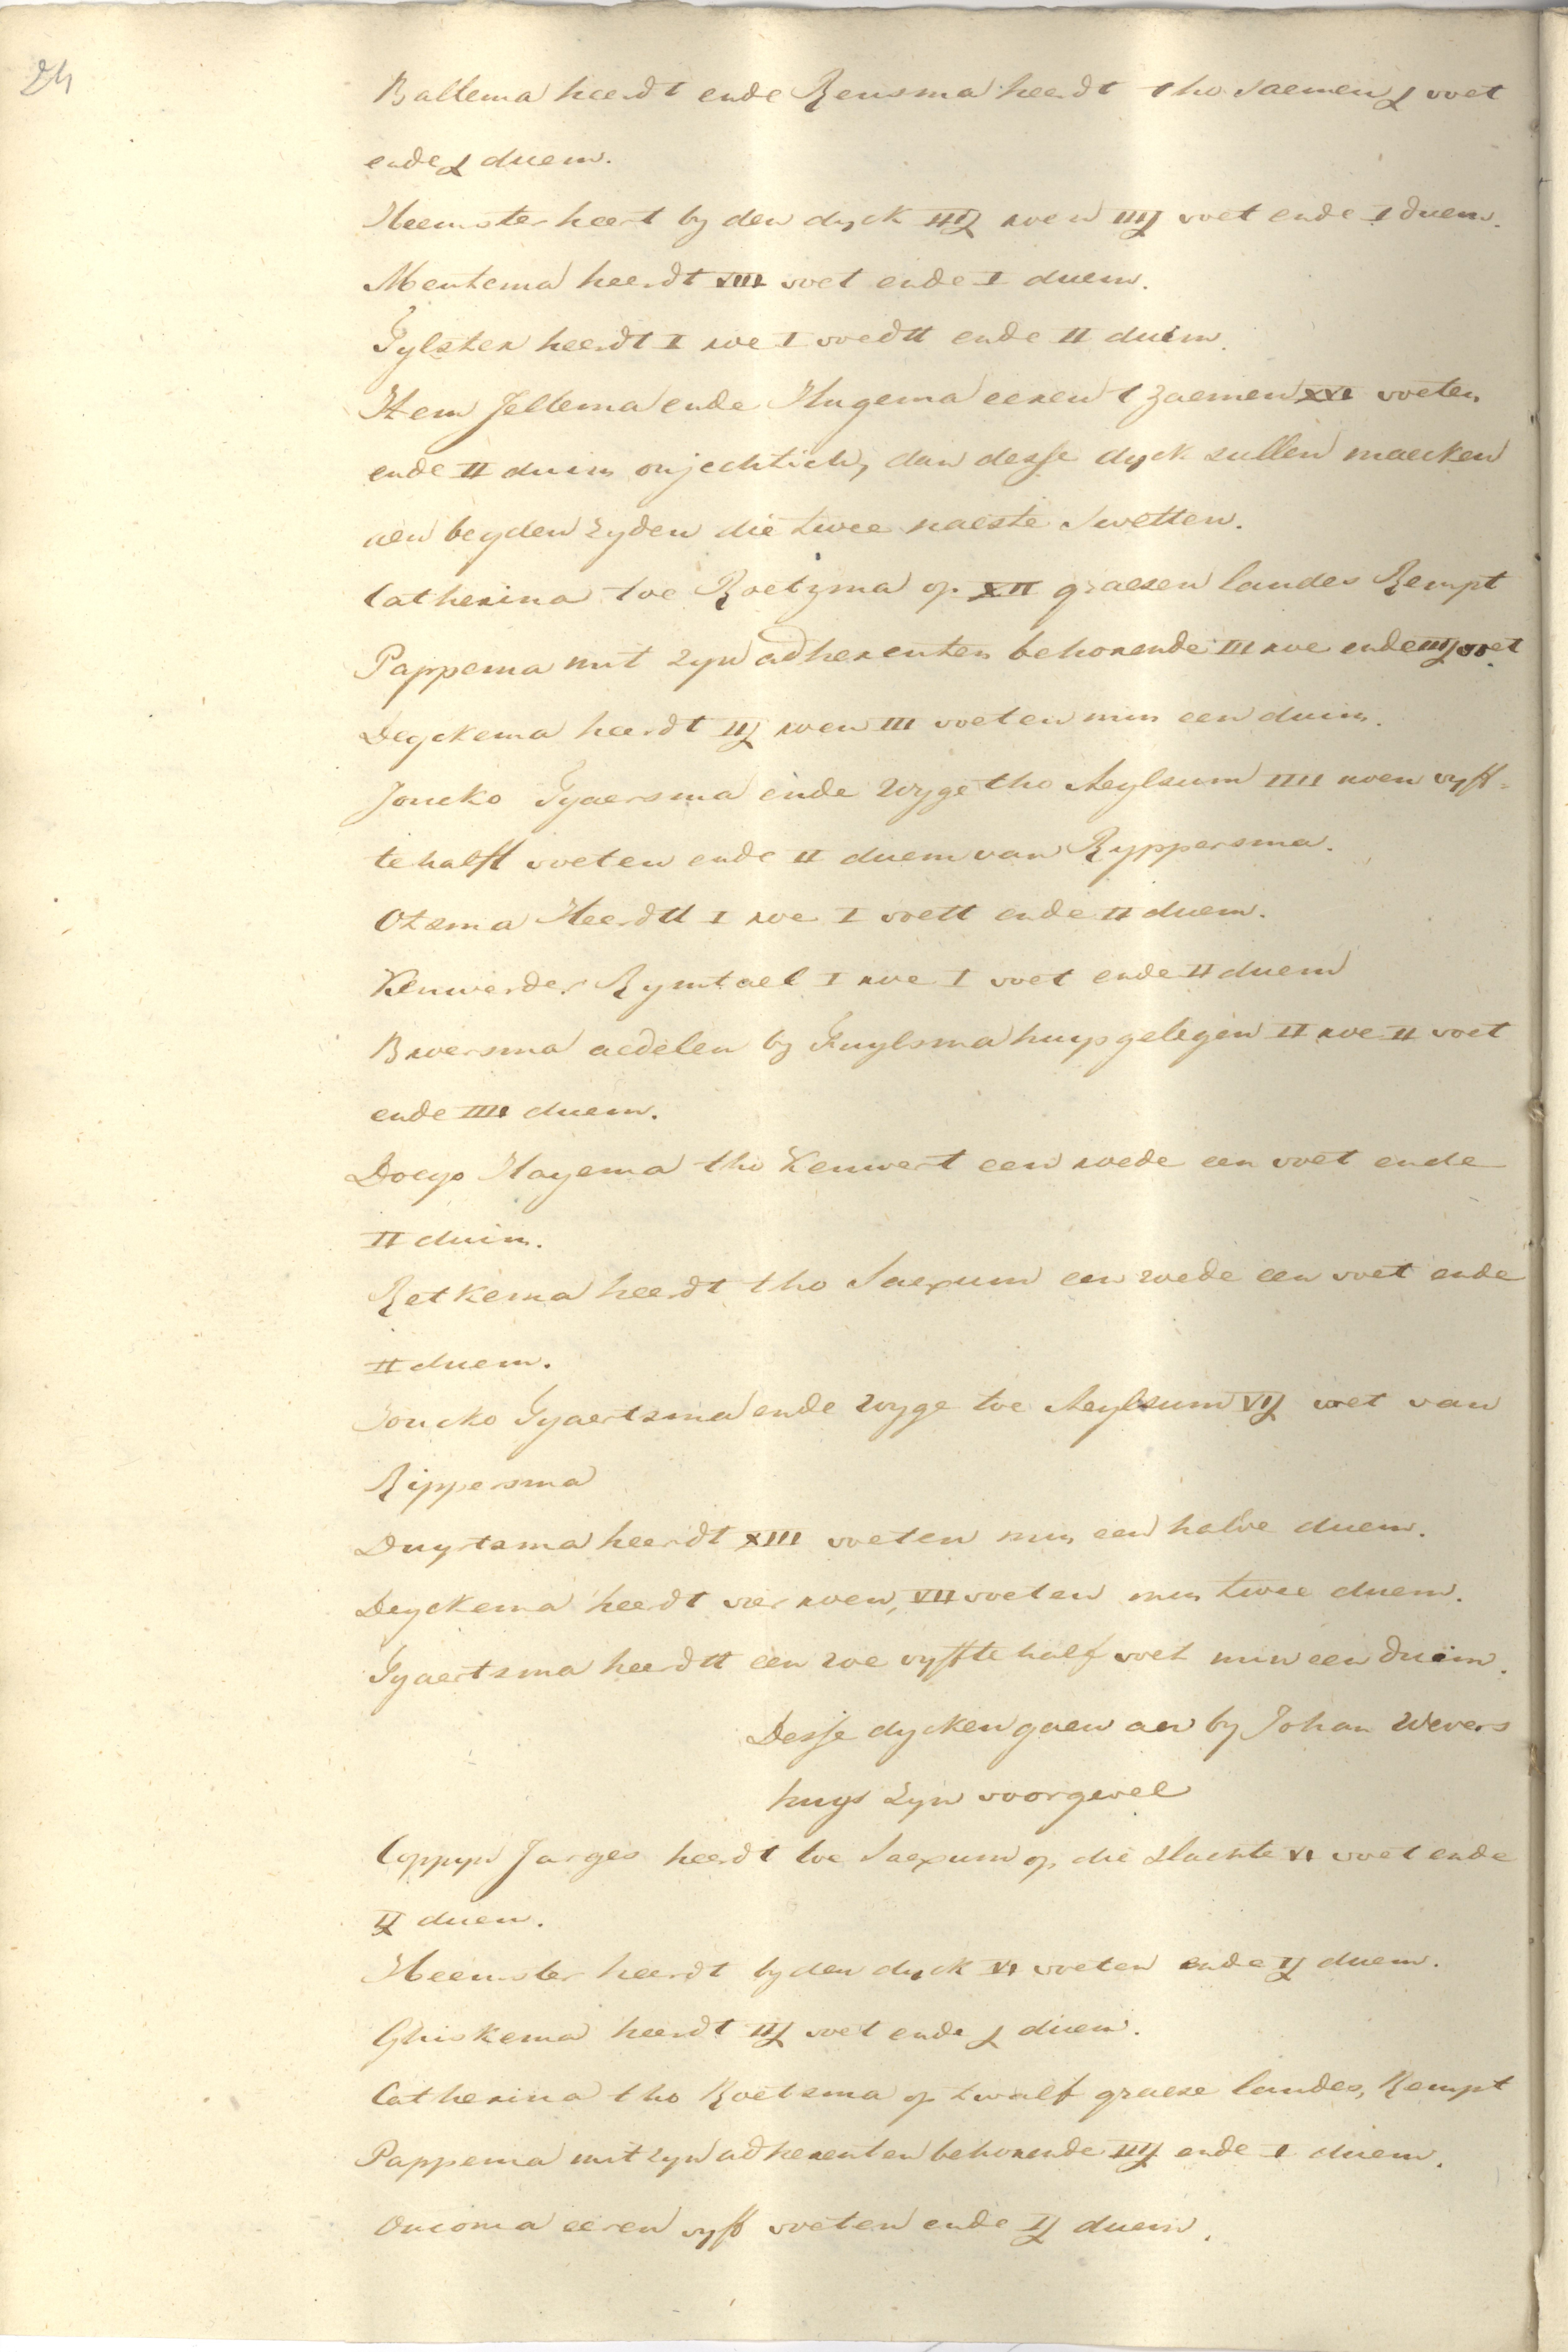 24
Ballema heerdt ende Rensma heerdt tho saemen j voet
ende j duem.
Heemster heert by den dyck IIIj roen IIIj voet ende I duem.
Mentema heerdt XIII voet ende I duem.
Tylster heerdt I roe I voedtt ende II duim.
Item Jeltema ende Hugema eeren t zaemen XVI voeten
ende II duim onjechtich, dan desse dyck sullen maecken
aen beyden zyden die twee naeste swetten.
Catherina toe Roetzma op XII graesen landes Rempt
Pappema mit zyn adherenten behorende III roe ende IIIj voet
Deyckema heerdt IIj roen III voeten min een duim.
Joucko Tyaersma ende Wyge tho Aeylsum IIII roen vyff-
tehalff voeten ende II duem van Ryppersma.
Otsma Heerdtt I roe I voett ende II duem.
Kenwerder Rymtael I roe I voet ende II duem
Broersma aedelen by Fuylsma huys gelegen II roe II voet
ende IIII duem.
Doeyo Hayema tho Kenwert een roede een voet ende
II duim.
Retkema heerdt tho Saexum een roede een voet ende
II duem.
Joucko Tyaertsma ende Wyge toe Aeylsum VIj voet van
Rippersma
Duyrtsma heerdt XIII voeten min een halve duem.
Deyckema heerdt vier roen, VII voeten min twee duem.
Tyaertsma heerdtt een roe vyfftehalf voet min een duim.
Desse dycken gaen aen by Johan Wevers
huys zyn voorgevel
Coppyn Jarges heerdt toe Saexum op die slachte VI voet ende
Ij duem.
Heemster heerdt by den dyck VI voeten ende Ij duem.
Ghiskema heerdt IIj voet ende j duem.
Catherina tho Roetsma op twalf graese landes, Rempt
Pappema mit zyn adherenten behorende IIIj ende I duem.
Oucoma eeren vyff voeten ende Ij duem.